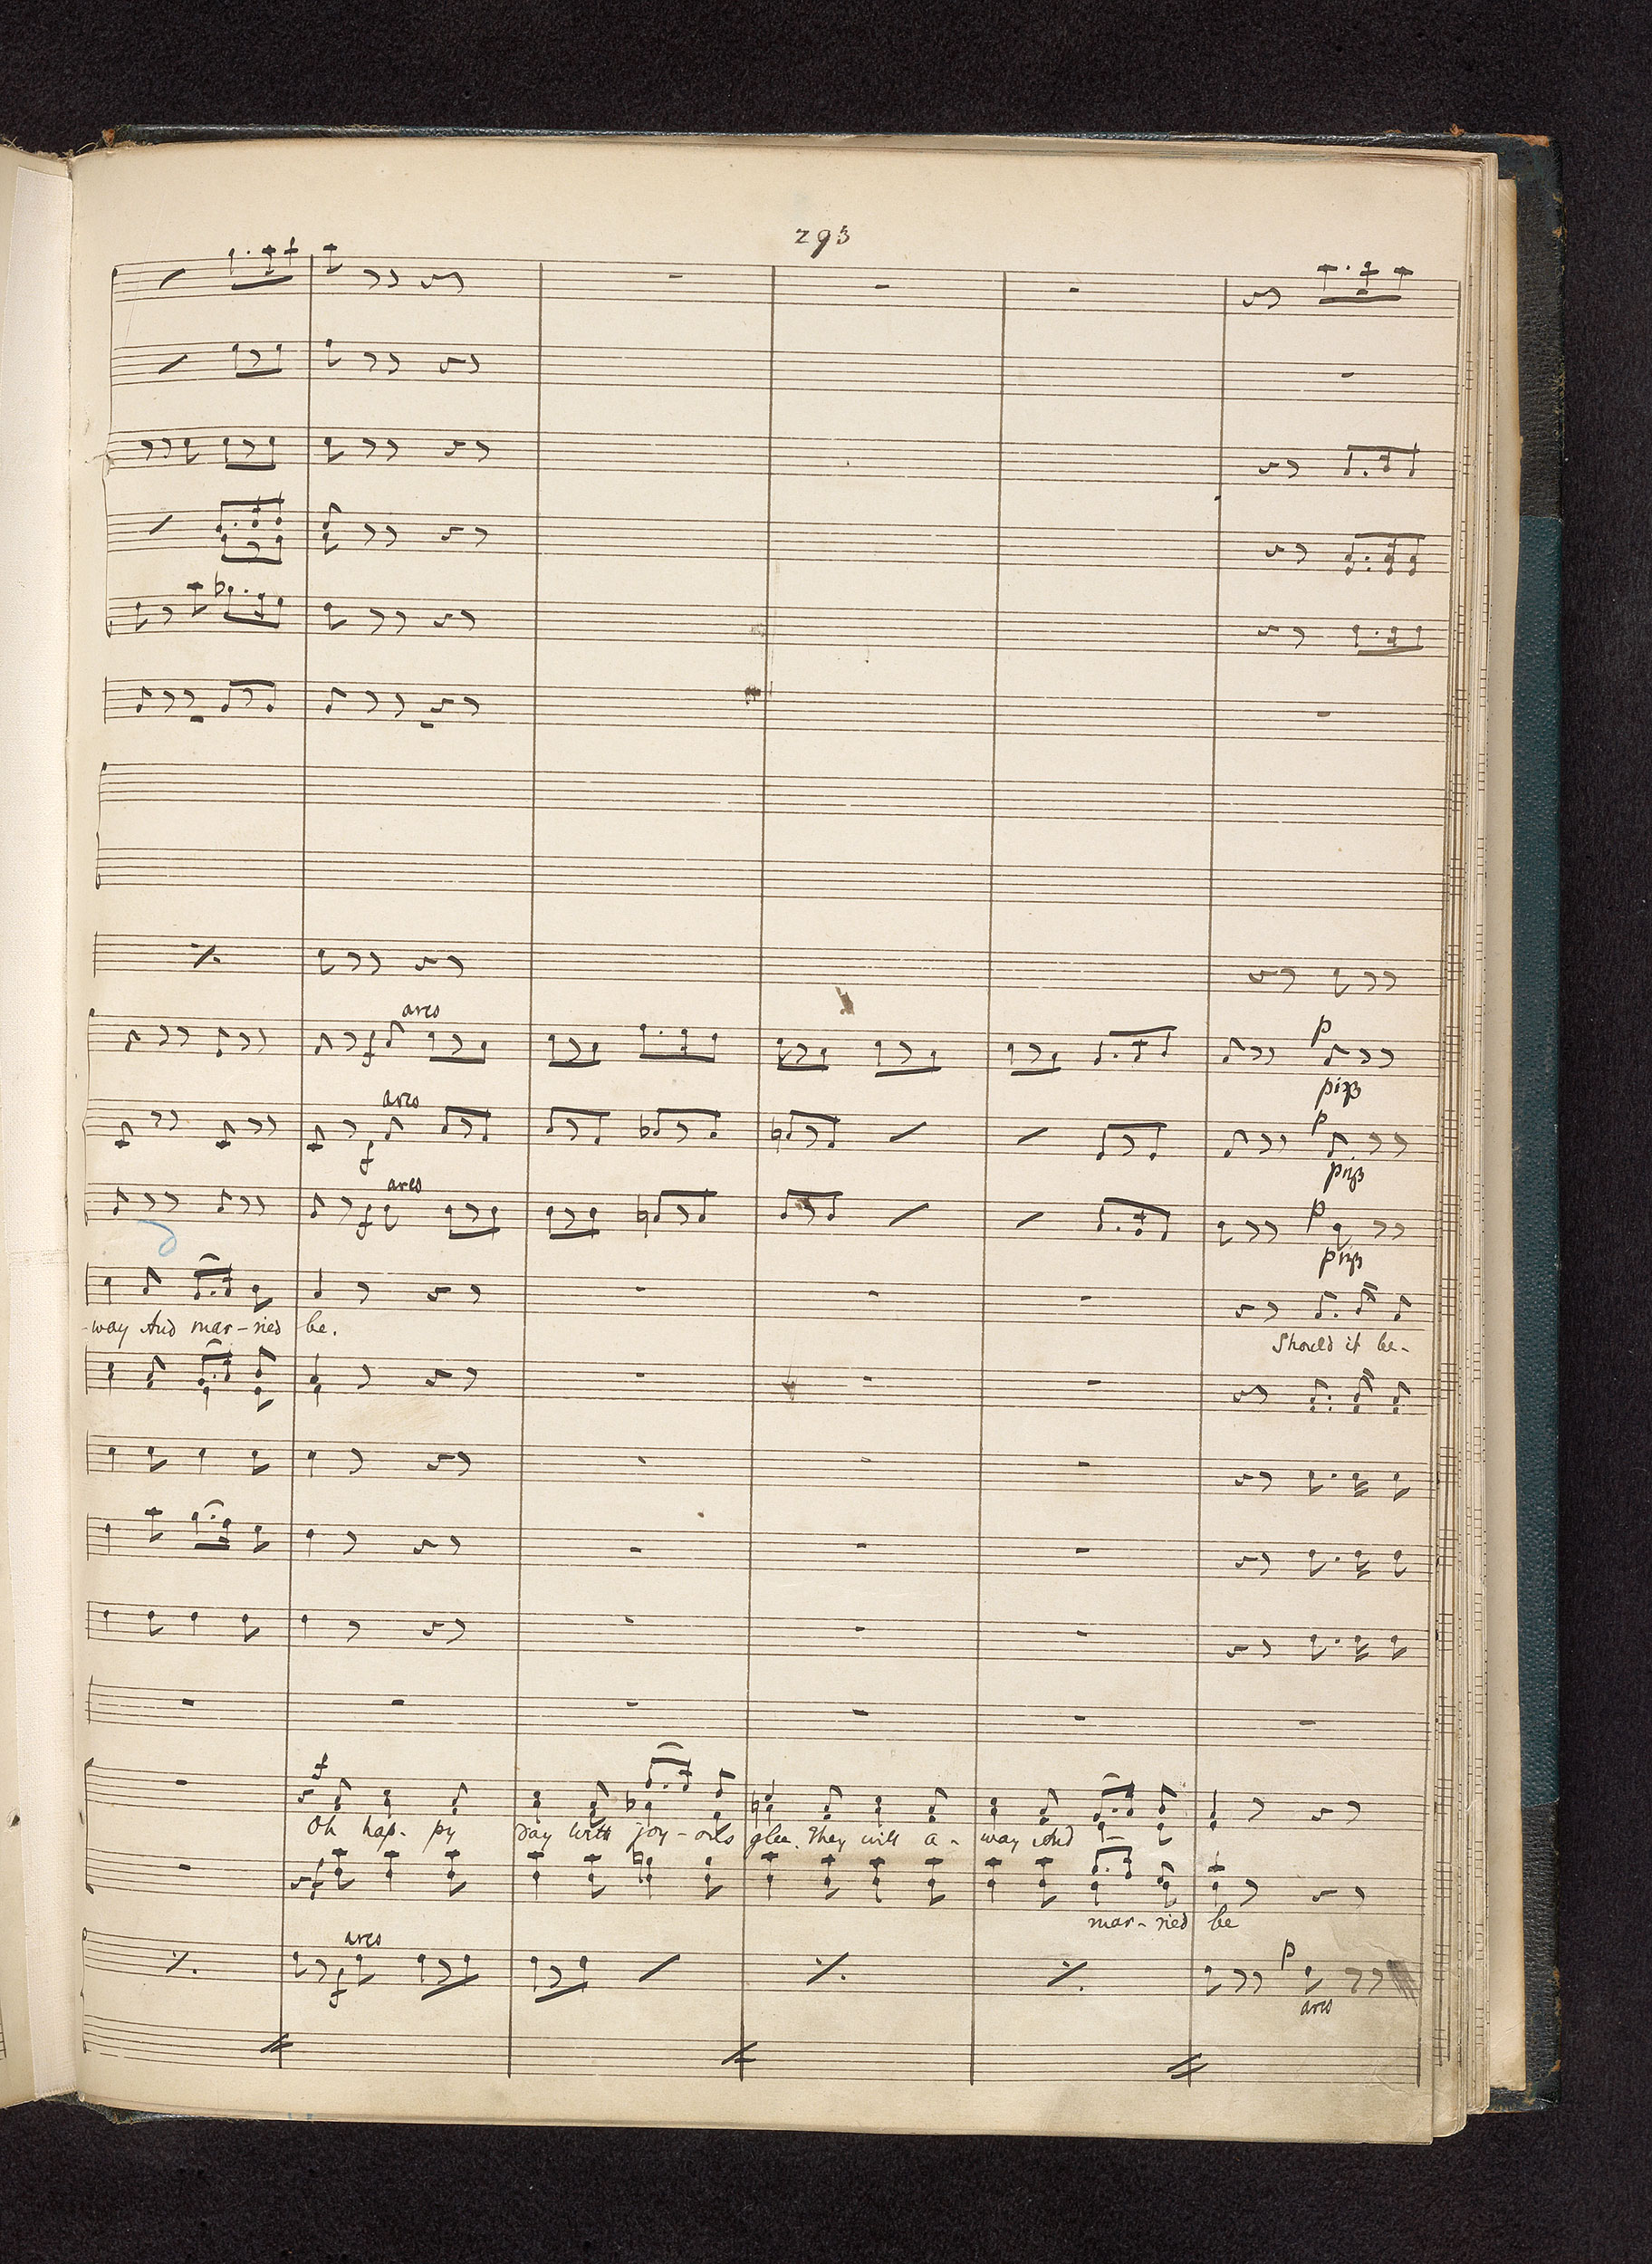 293
arco
f
p
pizz
arco
f
p
pizz
arco
f
p
pizz
-way And mar-ried be.
Should it be-
f
Oh hap-py day with joy-ous glee. They will a-way And
f
mar-ried be
arco
f
p
arco